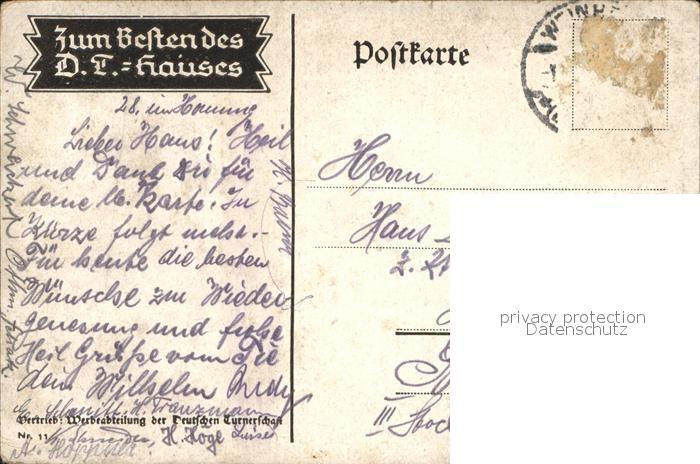 Zum Besten des
D. T.=Hauses
Postkarte
WEINHE
28. im Hornung
Lieber Hans! Heil
und Dank Dir für
deine lb. Karte. In
Kürze folgt mehr.-
Für heute die besten
Wünsche zur Wieder
genesung und frohe
Heil Grüße vom
dein Wilhelm
H. Franzmann
H. Hoge
Vertrieb: Werbeabteilung der Deutschen Turnerschaft
Nr. 11
Herrn
Hans
z. Zt
III Stock
privacy protection
Datenschutz